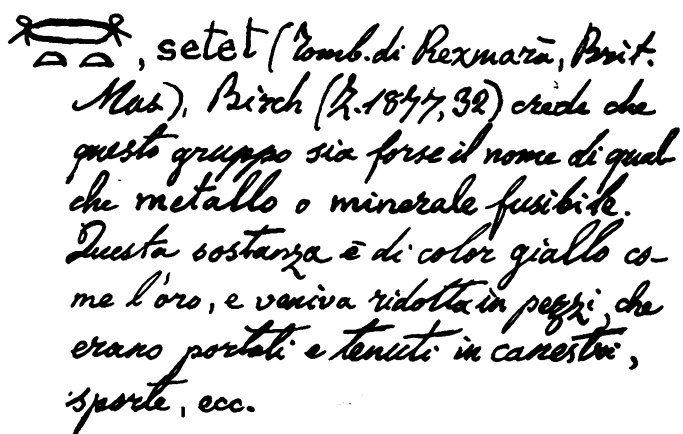 , setet (Tomb. di Rexmarā, Brit.
Mus.), Birch (Z. 1877, 32) crede che
questo gruppo sia forse il nome di qual-
che metallo o minerale fusibile.
Questa sostanza è di color giallo co-
me l'oro, e veniva ridotta in pezzi, che
erano portati e tenuti in canestri,
sporte, ecc.